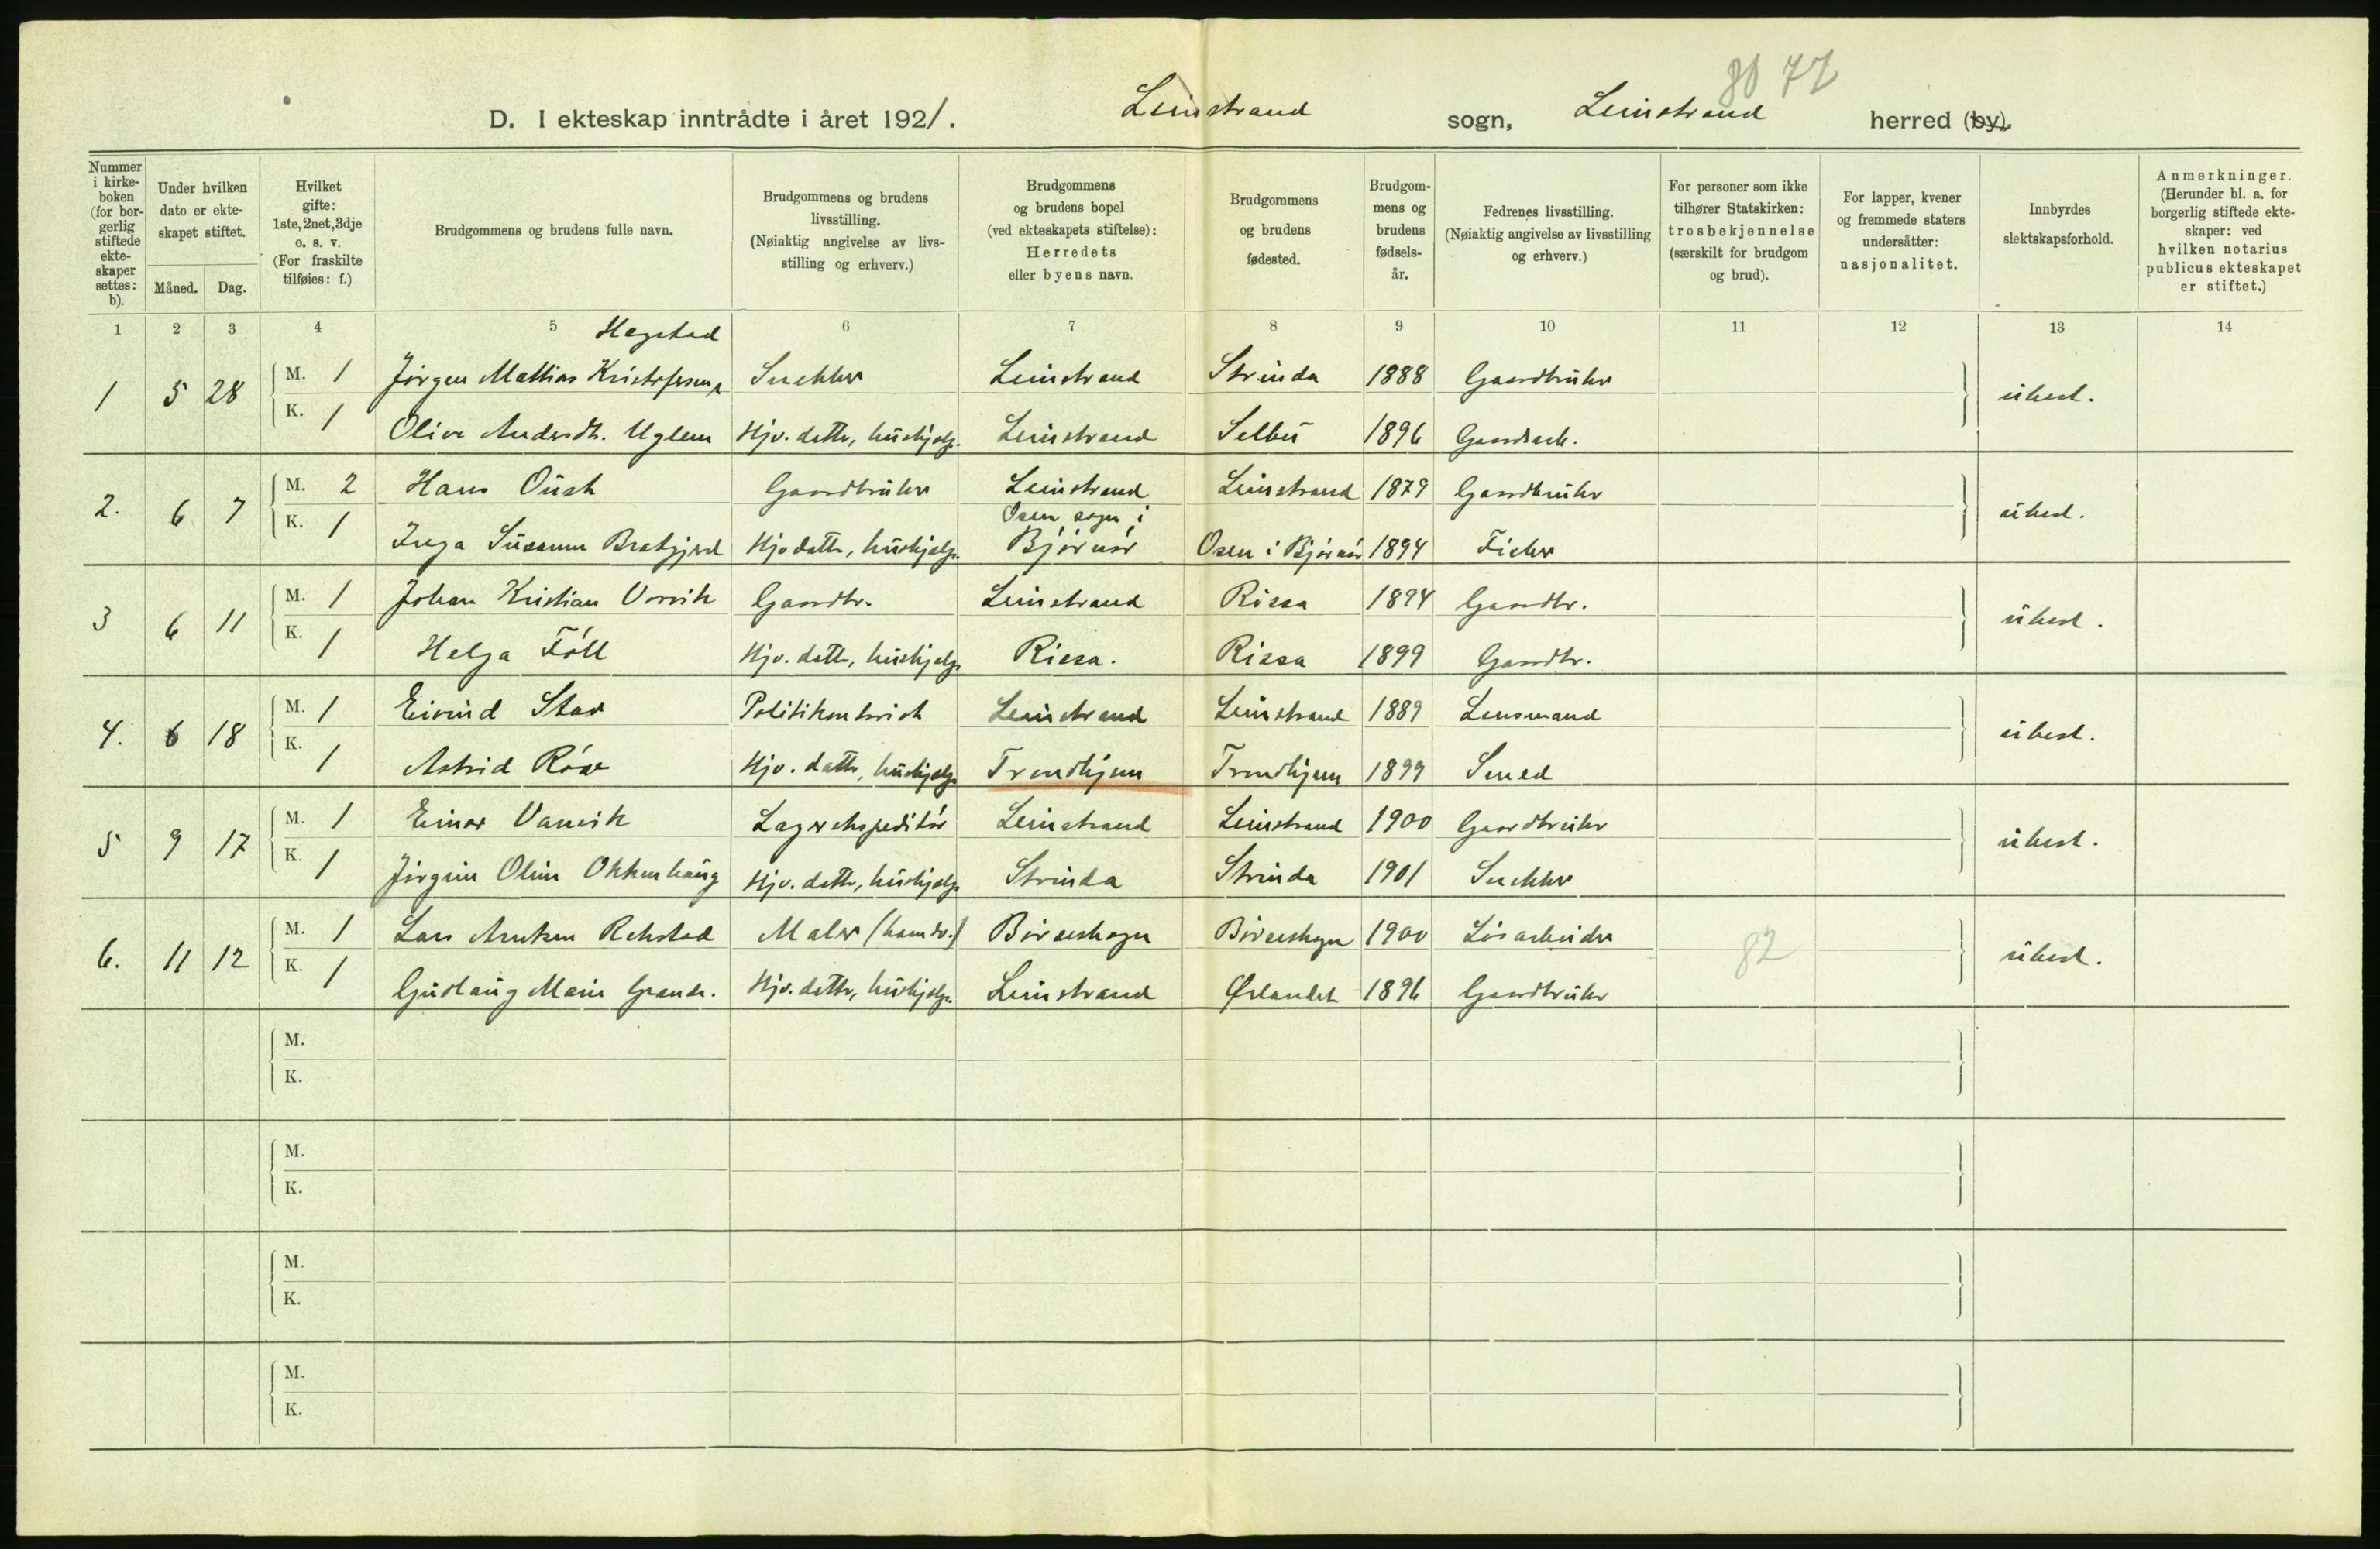 80 77
D. I ekteskap inntrådte i året 1921. Leinstrand sogn, Leinstrand herred (by).
Nummer i kirkeboken (for borgerlig stiftede ekteskaper settes: b).
Under hvilken dato er ekteskapet stiftet.
Måned. Dag.
Hvilket gifte: 1ste, 2net, 3dje o. s. v. (For fraskilte tilføies: f.)
Brudgommens og brudens fulle navn.
Brudgommens og brudens livsstilling. (Nøiaktig angivelse av livsstilling og erhverv.)
Brudgommens og brudens bopel (ved ekteskapets stiftelse): Herredets eller byens navn.
Brudgommens og brudens fødested.
Brudgommens og brudens fødselsår.
Fedrenes livsstilling. (Nøiaktig angivelse av livsstilling og erhverv.)
For personer som ikke tilhører Statskirken: trosbekjennelse (særskilt for brudgom og brud).
For lapper, kvener og fremmede staters undersåtter: nasjonalitet.
Innbyrdes slektskapsforhold.
Anmerkninger. (Herunder bl. a. for borgerlig stiftede ekteskaper: ved hvilken notarius publicus ekteskapet er stiftet.)
1 2 3 4 5 6 7 8 9 10 11 12 13 14
Hegstad
1 5 28 M. 1 Jörgen Mathias Kristofersen Snekker Leinstrand Strinda 1888 Gaardbruker ubesl.
K. 1 Olive Andersdt. Uglem Hjv. datter, hushjelp. Leinstrand Selbu 1896 Gaardarb.
2. 6 7 M. 2 Hans Oust Gaardbruker Leinstrand Leinstrand 1879 Gaardbruker ubesl.
Osen sogn i
K. 1 Inga Susanna Hjv datter, hushjelp. Bjørnör Osen i Bjørnör 1894 Fisker
3 6 11 M. 1 Johan Kristian Gaardbr. Leinstrand Rissa 1894 Gaardbr. ubesl.
K. 1 Helga Föll Hjv. datter, hushjelp Rissa. Rissa 1899 Gaardbr.
4. 6 18 M. 1 Eivind Stav Politikonst. Leinstrand Leinstrand 1889 Lensmand ubesl.
K. 1 Astrid Hjv. datter, hushjelp Trondhjem Trondhjem 1899 Smed
5 9 17 M. 1 Einar Vanvik Lagerekspeditör Leinstrand Leinstrand 1900 Gaardbruker ubesl.
K. 1 Jörgine Oline Okkenhaug Hjv. datter, hushjelp Strinda Strinda 1901 Snekker
6. 11 12 M. 1 Lars Arntsen Rekstad Maler (handv.) Börseskogn Börseskogn 1900 Lösarbeider 82 ubesl.
K. 1 Gudlaug Marie Grande. Hjv. datter, hushjelp. Leinstrand Ørlandet 1896 Gaardbruker
M.
K.
M.
K.
M.
K.
M.
K.